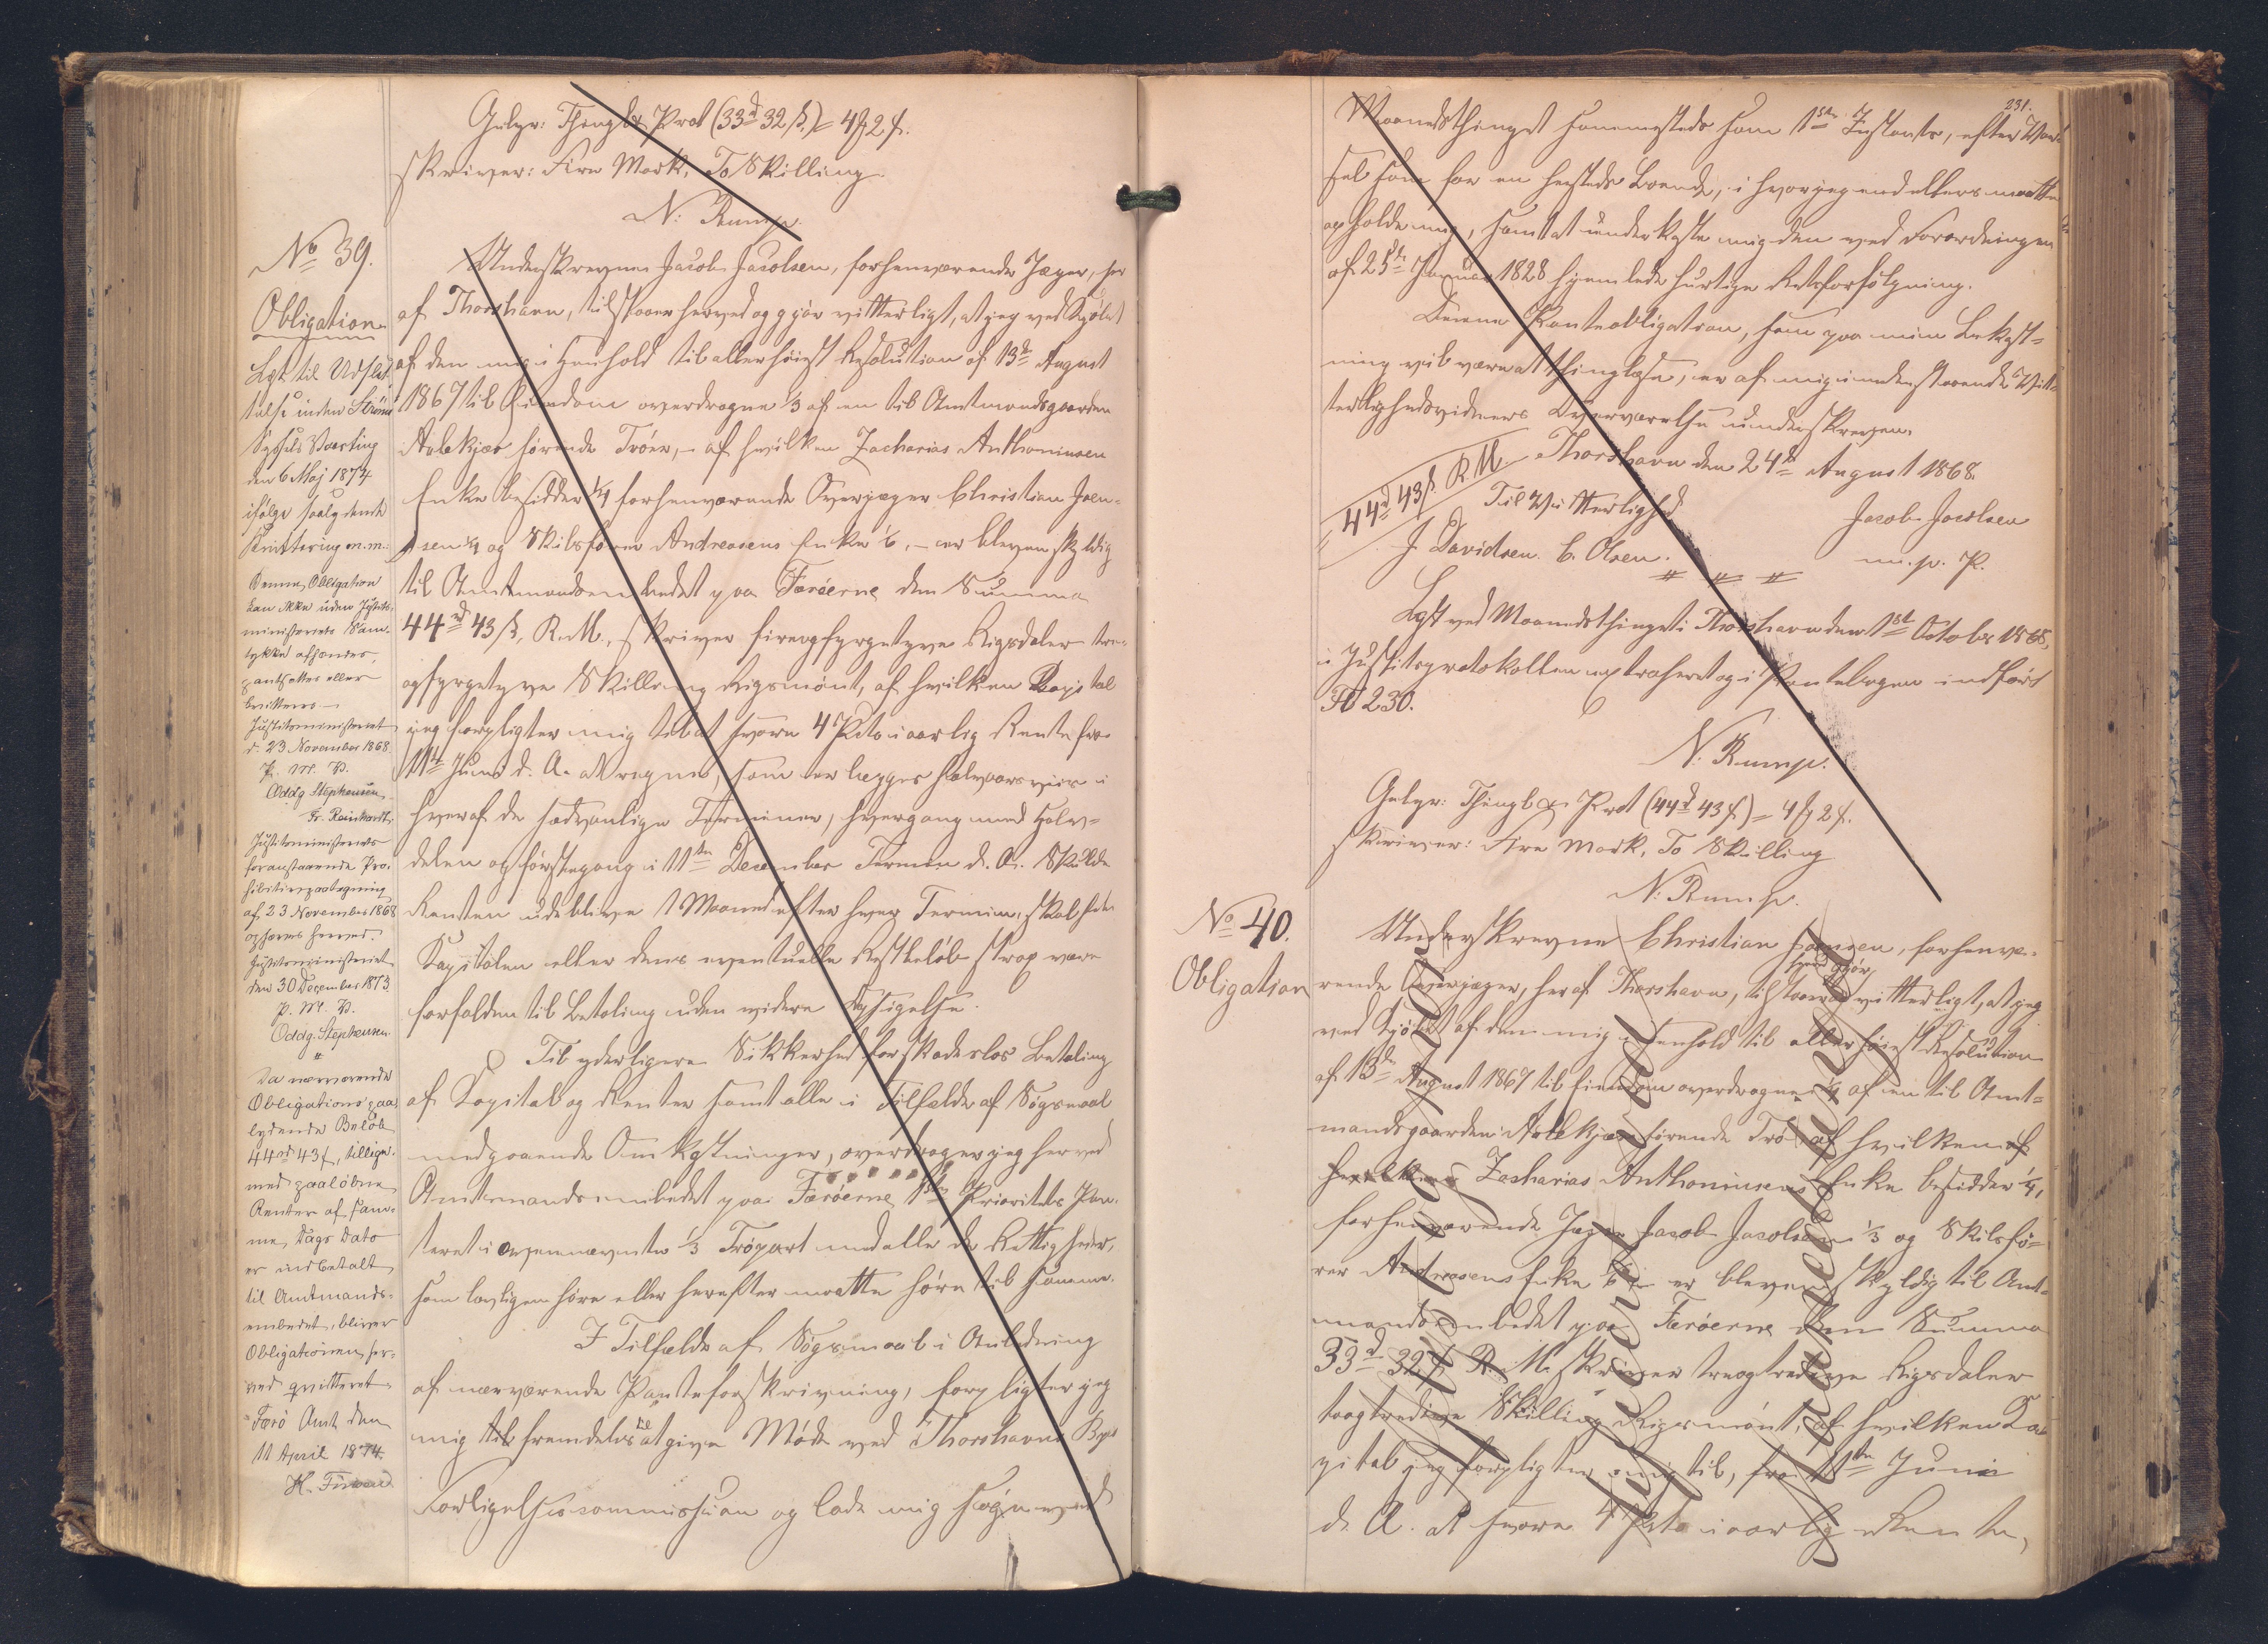 Gebyr: Thingl. Prot (33rd 32 ß) = 4 ℳ 2 ß.
skriver: Fire Mark, To Skilling
N: Rump.
No 39.
Obligation
Læst til Udslet-
telse inden Strömö
Syssels Vaarting
den 6 Maj 1874
ifølge saalydende
Kvittering m.m:
Denne Obligation
kan ikke uden Justits-
ministeriets Sam-
tykke afhændes,
pantsættes eller
kvitteres.
Justitsministeriet
d. 23 November 1868
P. M. V.
Oddg Stephensen
Fr. Reinhardt.
Justitsministeriets
foranstaaende Pro-
hibitivpaategning
af 23 November 1868
ophæves herved.
Justitsministeriet
den 30 December 1873.
P. M. V.
Oddg. Stephensen
Da nærværende
Obligations paa-
lydende Beløb
44rd 43 ß, tillige-
med paaløbne
Renter af sam-
me, Dags Dato
er indbetalt
til Amtmands-
embedet, bliver
Obligationen her-
ved qvitteret.
Færø Amt den
11 April 1874.
H. Finsen
Underskrevne Jacob Jacobsen, forhenværende Jæger, her
af Thorshavn, tilstaaer herved og gjør vitterligt, at jeg ved Kjøbet
af den mig i Henhold til allerhøiest Resolution af 13de August
1867 til Eiendom overdragne 1/3 af en til Amtmandsgaarden
Aalekjær hørende Tröer, – af hvilken Zacharias Anthoniusen
Enke besidder 1/4 forhenværende Overjæger Christian Joen-
sen 1/4 og Skibsfører Andreasens Enke 1/6, – er bleven skyldig
til Amtmandsembedet paa Færöerne den Summa
44rd 43 ß, R. M., skriver fireogfyrgetyve Rigsdaler tre-
ogfyrgetyve Skilling Rigsmønt, af hvilken Capital
jeg forpligter mig til at svare 4 Pcto i aarlig Rente fra
11te Juni d. A. at regne, som erlægges halvaarsviis i
hver af de sædvanlige Terminer, hvergang med Halv-
delen og førstegang i 11te December Termin d. A. Skulde
Renten udeblive 1 Maaned efter hver Termin, skal hele
Kapitalen eller dens eventuelle Restbeløb strax være
forfalden til Betaling uden videre Opsigelse.
Til yderligere Sikkerhed for skadesløs Betaling
af Kapital og Renter samt alle i Tilfælde af Søgsmaal
medgaaende Omkostninger, overdrager jeg herved
Amtmandsembedet paa Færöerne 1ste Prioritets Pan-
teret i ovennævnte 1/3 Tröpart med alle de Rettigheder,
som lovligen høre eller herefter maatte høre til samme.
I Tilfælde af Søgsmaal i Anledning
af nærværende Panteforskrivning, forpligter jeg
mig til fremdeles til at give Møde ved Thorshavns Byes
Forligelsescommission og lade mig søge ved
231.
Maanedsthinget sammesteds som 1ste Instants, efter Var-
sel som for en hersteds Boende, i hvor jeg end ellers maatte
opholde mig, samt at underkaste mig den ved Forordningen
af 25de Januar 1828 hjemlede hurtige Retsforfølgning.
Denne Panteobligation, som paa min Bekost-
ning vil være at thinglæse, er af mig i undenstaaende Vit-
terlighedsvidners Overværelse underskreven.
44rd 43 ß. R M.
Thorshavn den 24de August 1868.
Til Vitterlighed
Jacob Jacobsen
J. Davidsen. C. Olsen.
m. p. P.
Læst ved Maanedsthinget i Thorshavn den 1ste October 1868,
i Justitsprotokollen extraheret og i Pantebogen indført
Fol 230.
N. Rump.
Gebyr: Thingl. Prot (44rd 43 ß) = 4 ℳ 2 ß.
skriver: Fire Mark, To Skilling
N. Rump.
No 40.
Obligation
Underskrevne Christian Joensen, forhenvæ-
rende Overjæger, her af Thorshavn, tilstaaer og herved gjør vitterligt, at jeg
ved Kjøbet af den mig i Henhold til allerhøiest Resolution
af 13de August 1867 til Eiendom overdragne 1/4 af en til Amt-
mandsgaarden Aalekjær hørende Trö, af hvilken af
hvilken Zacharias Anthoniusens Enke besidder 1/4,
forhenværende Jæger Jacob Jacobsen 1/3 og Skibsfø-
rer Andreasens Enke 1/6 – er bleven skyldig til Amt-
mandsembedet paa Færöerne den Summa
33rd 32 ß R. M. skriver treogtredive Rigsdaler
toogtredive Skilling Rigsmønt, af hvilken Ca-
pital jeg forpligter mig til, fra 11te Juni
d. A. at svare 4 Pcto i aarlig Rente,